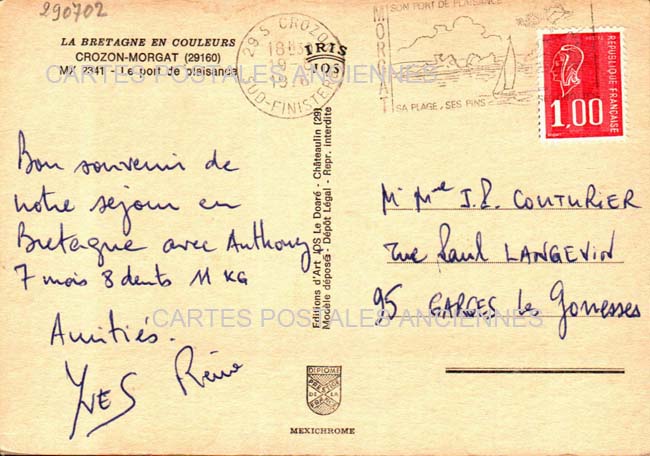 290702
LA BRETAGNE EN COULEURS
CROZON-MORGAT (29160)
MX 2341 - Le port de plaisance
IRIS
JOS
29 S CROZON
18H
SUD-FINISTERE
MORGAT
SON PORT DE PLAISANCE
SA PLAGE, SES PINS
POSTES
REPUBLIQUE FRANÇAISE
1,00
CARTES POSTALES ANCIENNES
Bon souvenir de
notre séjour en
Bretagne avec Anthony
7 mois 8 dents 11 KG
Amitiés.
YVES Reine
Editions d'Art JOS Le Doaré - Châteaulin (29)
Modèle déposé - Dépôt Légal - Repr. interdite
Mr Mme J.P. COUTURIER
rue Paul LANGEVIN
95 GARGES les Gonesses
CARTES POSTALES ANCIENNES
DIPLOME
PRESTIGE
DE LA
FRANCE
MEXICHROME